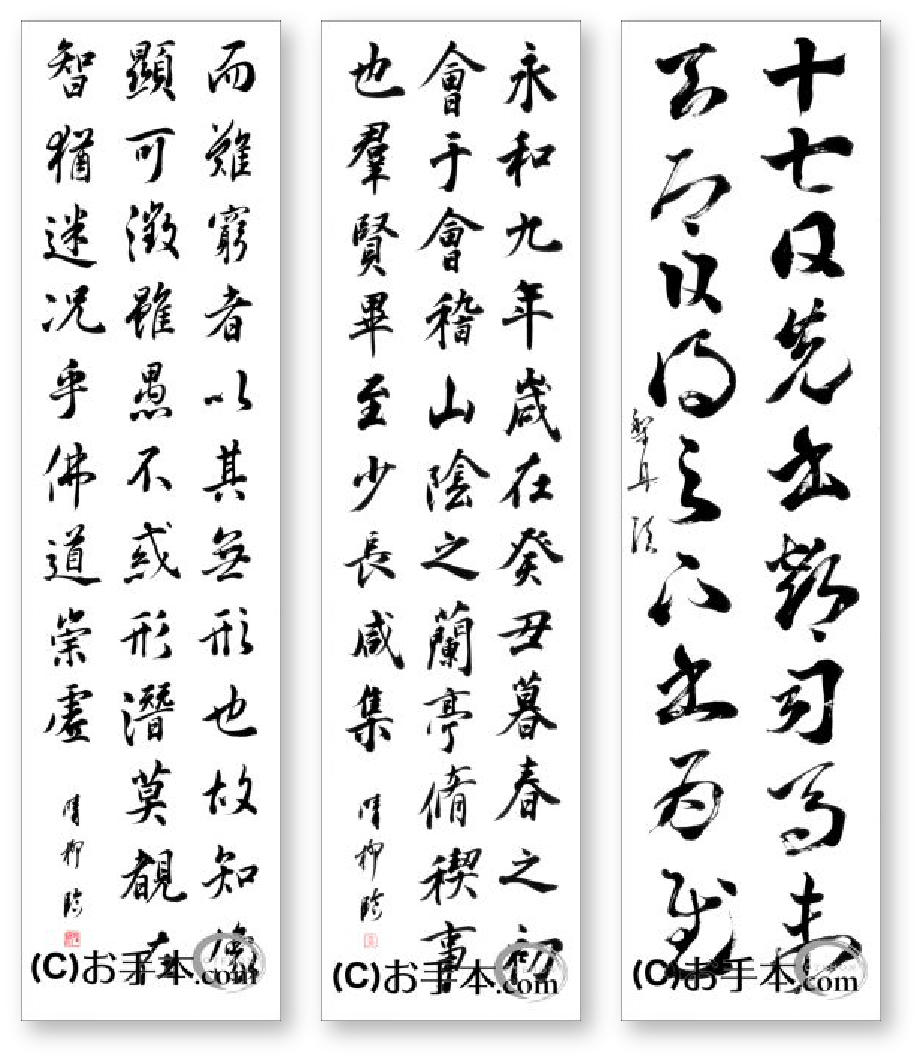 十七日先書郗司馬未
去即日得足下書為慰
(C)お手本.com
永和九年歲在癸丑暮春之初
會于會稽山陰之蘭亭脩禊事
也羣賢畢至少長咸集
(C)お手本.com
而難窮者以其無形也故知像
顯可徵雖愚不惑形潛莫覩在
智猶迷况乎佛道崇虛
(C)お手本.com